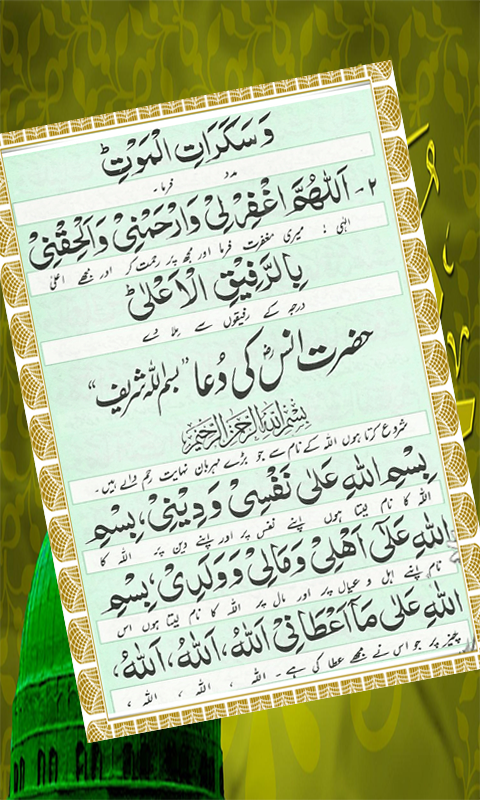 وَسَكَرَاتِ الْمَوْتِؕ
مدد فرما۔
۲۔ اَللّٰهُمَّ اغْفِرْ لِیْ وَارْحَمْنِیْ وَاَلْحِقْنِیْ
الٰہی ! میری مغفرت فرما اور مجھ پر رحمت کر اور مجھے اعلیٰ
بِالرَّفِیْقِ الْاَعْلٰیؕ
درجہ کے رفیقوں سے ملا دے
حضرت انسؓ کی دُعا ”بسم اللہ شریف“
بِسْمِ اللهِ الرَّحْمٰنِ الرَّحِيْمِ
شروع کرتا ہوں اللہ کے نام سے جو بڑے مہربان نہایت رحم والے ہیں۔
بِسْمِ اللهِ عَلٰی نَفْسِیْ وَدِیْنِیْ، بِسْمِ
اللہ کا نام لیتا ہوں اپنے نفس پر اور اپنے دین پر اللہ کا
اللهِ عَلٰٓی اَهْلِیْ وَمَالِیْ وَوَلَدِیْ، بِسْمِ
نام اپنے اہل و عیال پر اور مال پر اللہ کا نام لیتا ہوں اس
اللهِ عَلٰی مَآ اَعْطَانِیْ اَللهُ، اَللهُ، اَللهُ،
چیز پر جو اس نے مجھے عطا کی ہے۔ اللہ ، اللہ ، اللہ ،